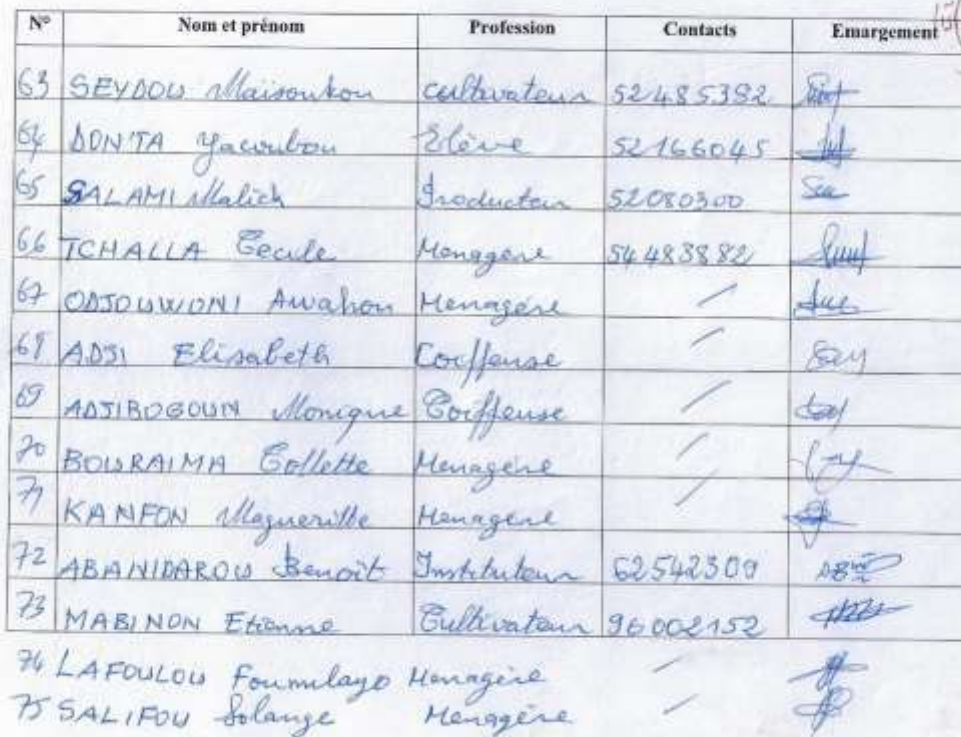 N° Nom et prénom Profession Contacts Emargement
63 SEYDOU Maïsoukou cultivateur 52485392
64 DONTA Yacoubou Elève 52166045
65 SALAMI Malick Producteur 52080300
66 TCHALLA Cecile Menagère 54483882
67 ODJOUWONI Awahou Menagère /
68 ADJI Elisabeth Coiffeuse /
69 ADJIBOGOUN Monique Coiffeuse /
70 BOURAIMA Collette Menagère /
71 KANFON Magueritte Menagère /
72 ABANIDAROU Benoît Instituteur 62542309
73 MABINON Etienne Cultivateur 96002152
74 LAFOULOU Foumilayo Menagère /
75 SALIFOU Solange Menagère /